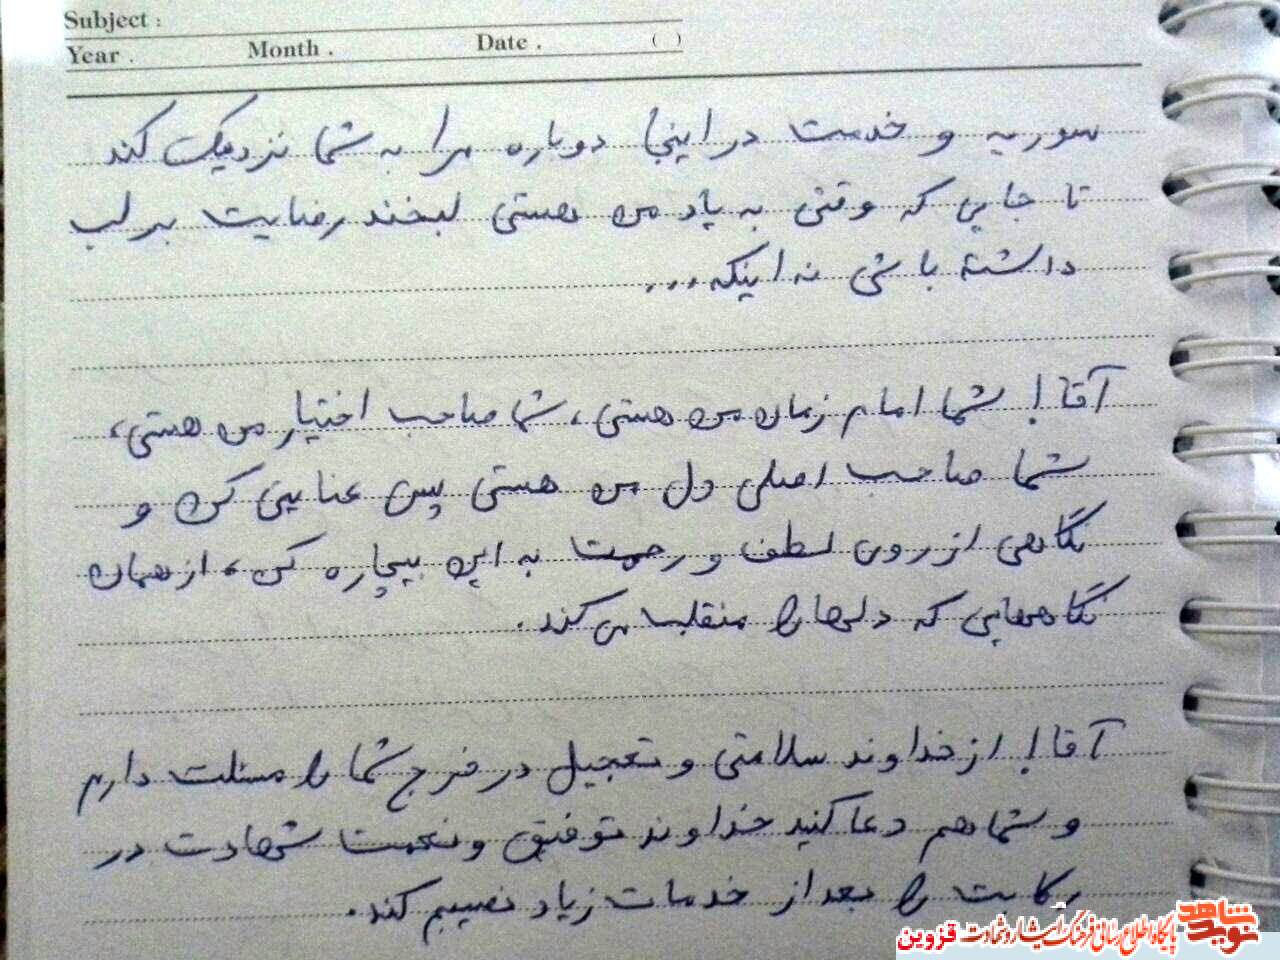 Subject :
Year . Month . Date . ( )
سوریه و خدمت در اینجا دوباره مرا به شما نزدیک کند
تا جایی که وقتی به یاد من هستی لبخند رضایت بر لب
داشته باشی نه اینکه...
آقا! شما امام زمان من هستی، شما صاحب اختیار من هستی،
شما صاحب اصلی دل من هستی پس عنایتی کن و
نگاهی از روی لطف و رحمت به این بیچاره کن، از همان
نگاههایی که دلها را منقلب می کند.
آقا! از خداوند سلامتی و تعجیل در فرج شما را مسئلت دارم
و شما هم دعا کنید خداوند توفیق و نعمت شهادت در
رکابت را بعد از خدمات زیاد نصیبم کند.
نوید شاهد پایگاه اطلاع رسانی فرهنگ ایثار و شهادت قزوین